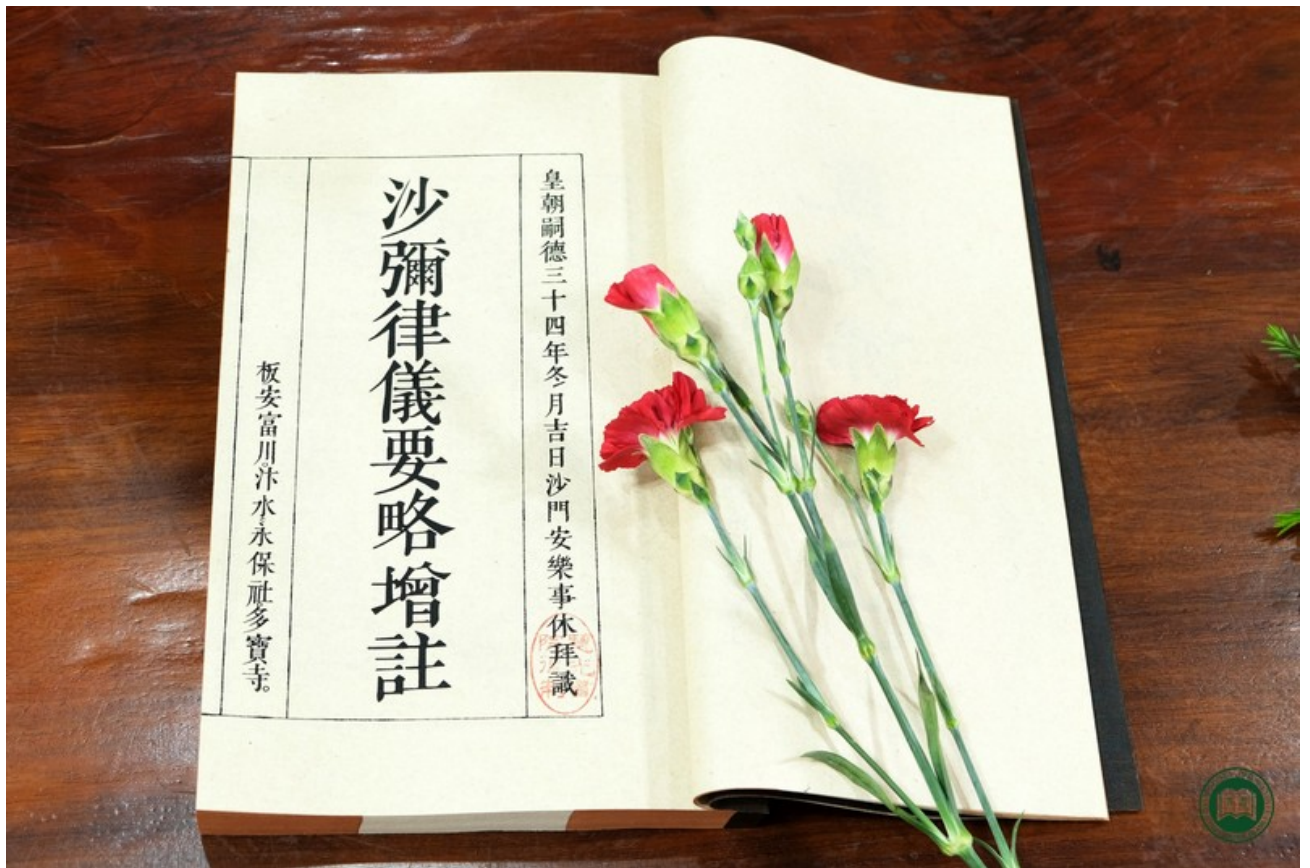 皇朝嗣德三十四年冬月吉日沙門安樂事休拜識
沙彌律儀要略增註
板安富川汴水永保社多寶寺。